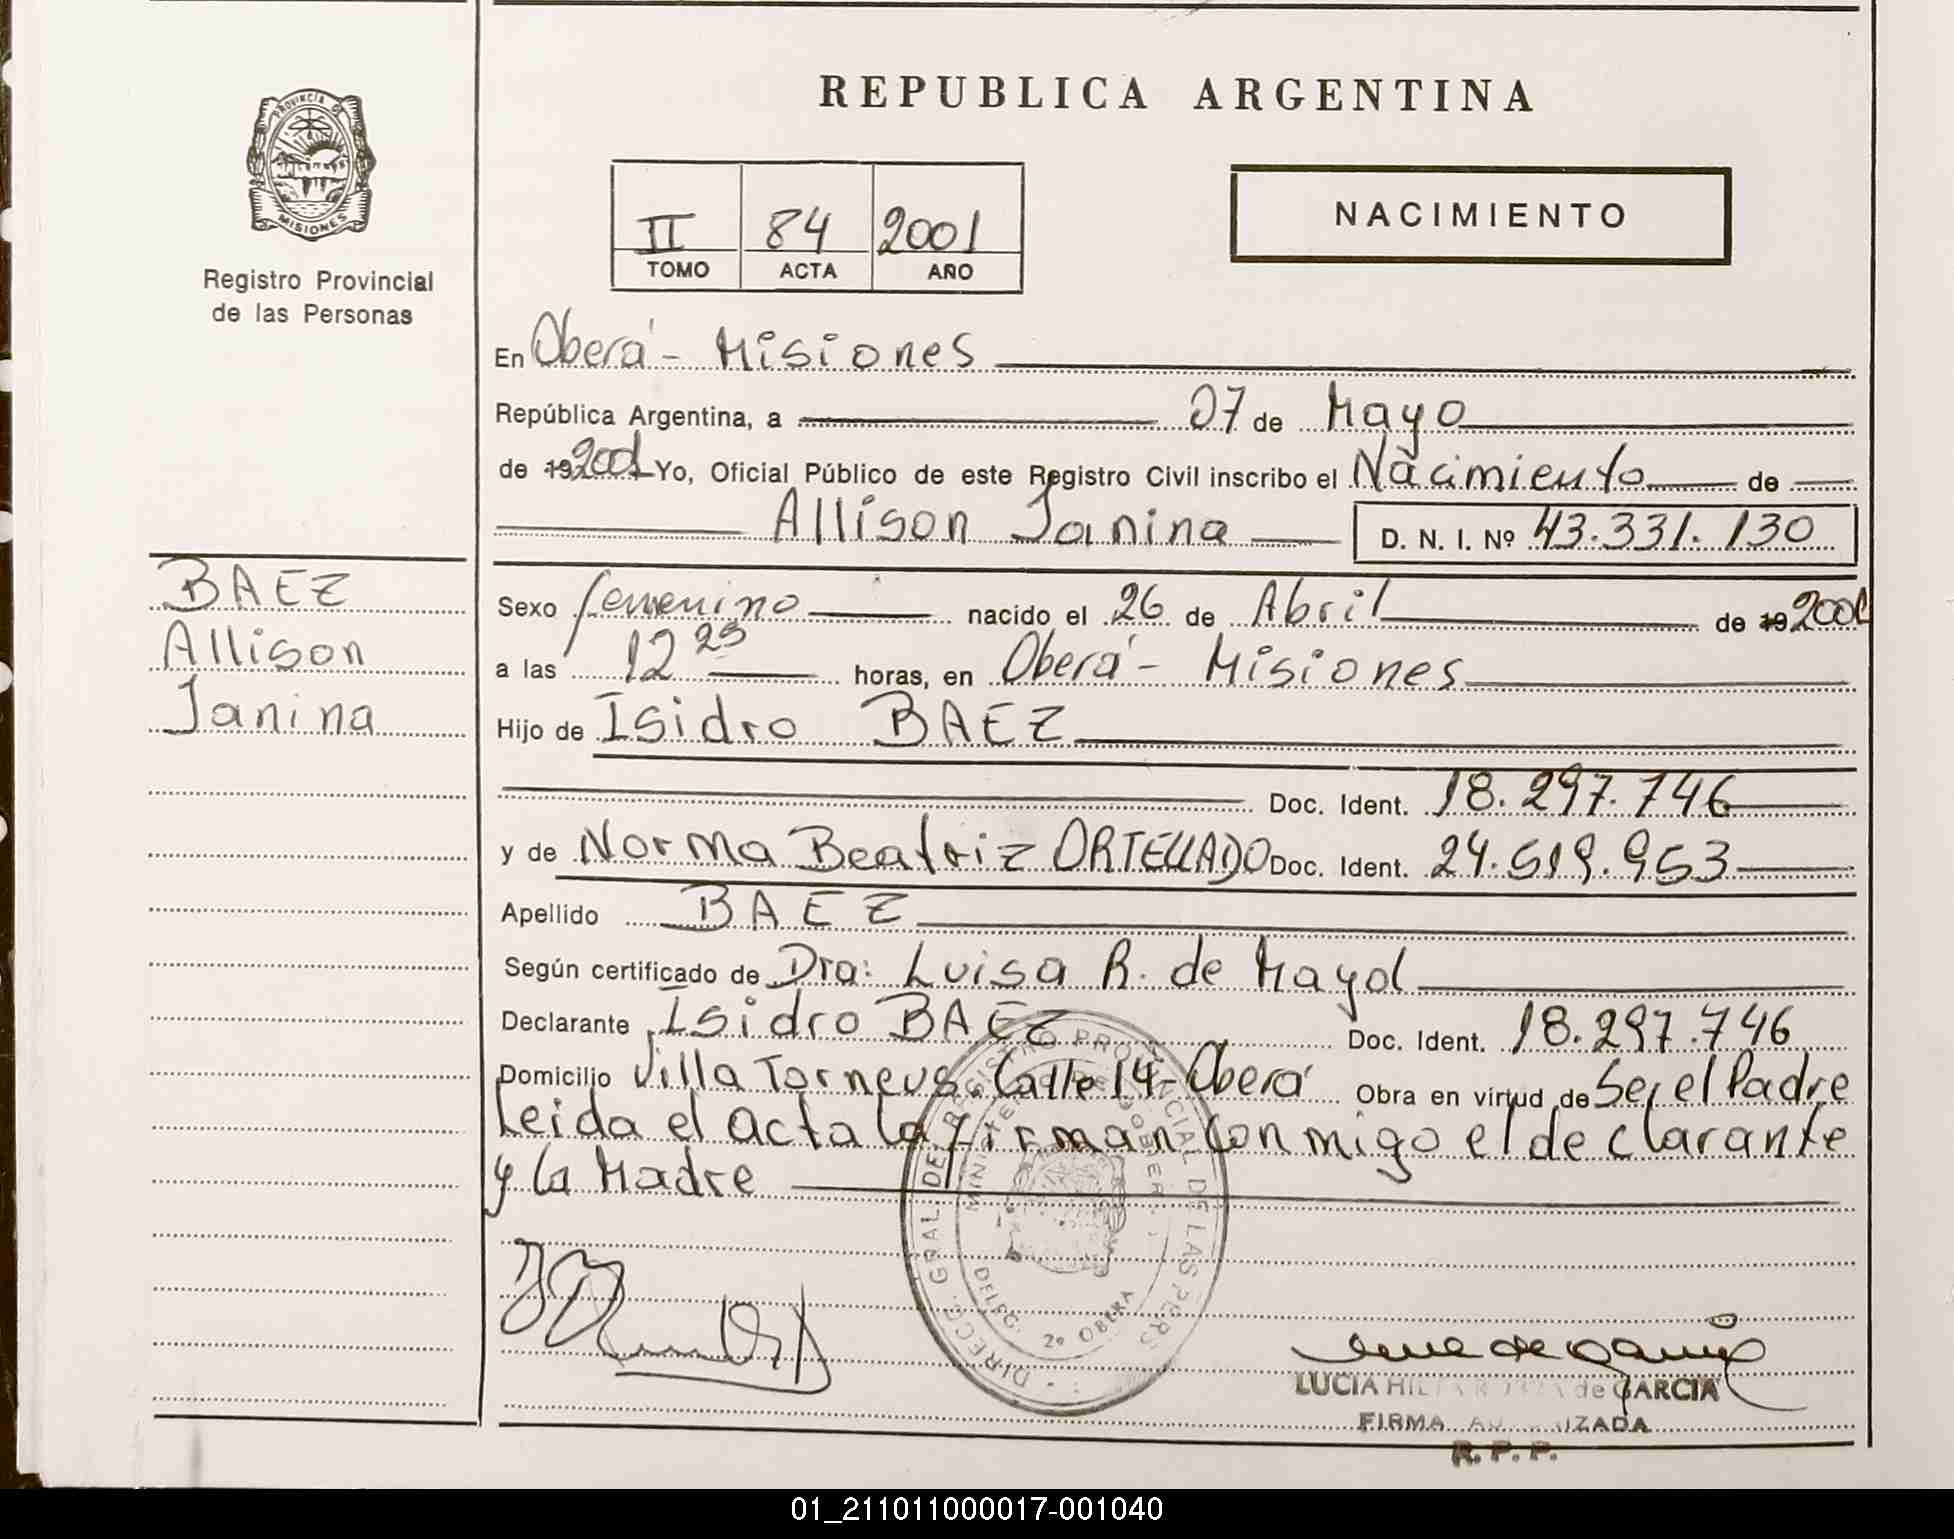 PROVINCIA DE
MISIONES
Registro Provincial
de las Personas
REPUBLICA ARGENTINA
II 84 2001
TOMO ACTA AÑO
NACIMIENTO
En Oberá - Misiones
República Argentina, a 07 de Mayo
de 19 2001 Yo, Oficial Público de este Registro Civil inscribo el Nacimiento de
Allison Janina D. N. I. Nº 43.331.130
BAEZ
Allison
Janina
Sexo femenino nacido el 26 de Abril de 19 2001
a las 12 25 horas, en Oberá - Misiones
Hijo de Isidro BAEZ
Doc. Ident. 18.297.746
y de Norma Beatriz ORTELLADO Doc. Ident. 24.519.953
Apellido BAEZ
Según certificado de Dra: Luisa R. de Mayol
Declarante Isidro BAEZ Doc. Ident. 18.297.746
Domicilio Villa Torneus Calle 14 - Oberá Obra en virtud de Ser el Padre
Leida el acta la firman conmigo el declarante
y la Madre
DIRECC. GRAL. DE REGISTRO PROVINCIAL DE LAS PERS.
DELEG. 2º OBERA
LUCIA de GARCIA
FIRMA
R. P. P.
01_211011000017-001040